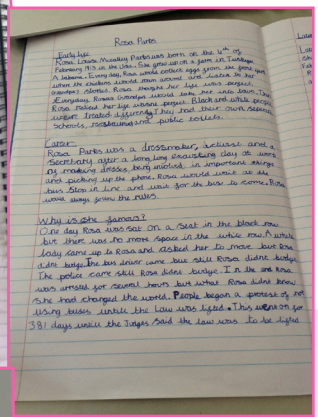 Rosa Parks
Early life
Rosa Louise McCauley Parks was born on the 4th of
February 1913 in the USA. She grew up on a farm in Tuskegee
Alabama. Everyday, Rosa would collect eggs from the
when the chickens would roam around and listen to her
Grandpas stories. Rosa thought her life was perfect.
Everyday, Rosas Grandpa would take her into town. Then
Rosa noticed her life wasnt perfect. Black and white people
were treated differently. They had their own separate
schools, restaurants and public toilets.
Later
Rosa Parks was a dressmaker, activist and a
Secretary after a long long exausting day at work
ing making dresses, being involved in important things
and picking up the phone. Rosa would wait at the
bus Stop in line and wait for the bus to come. Rosa
would always follow the rules.
Why is she famous?
One day Rosa was sat on a Seat in the black row
but there was no more space in the white row. A white
lady came up to Rosa and asked her to move but Rosa
didnt budge. The bus driver came but still Rosa didnt budge.
The police came still Rosa didnt budge. In the end Rosa
was arrested for several hours but what Rosa didnt know
she had changed the world. People began a protest of not
using buses untill the Law was lifted. This went on for
381 days untill the Judges Said the law was to be lifted